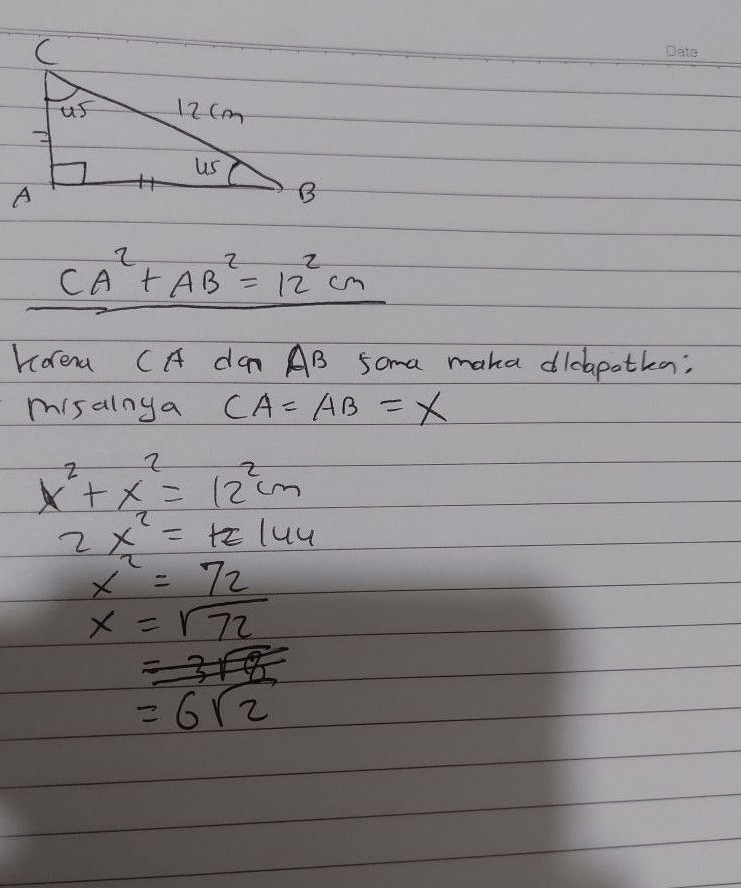 Date
C
45
12 cm
45
A
B
CA² + AB² = 12² cm
karena CA dan AB sama maka didapatkan:
misalnya CA = AB = x
x² + x² = 12² cm
2x² = 144
x² = 72
x = √72
= 3√8
= 6√2